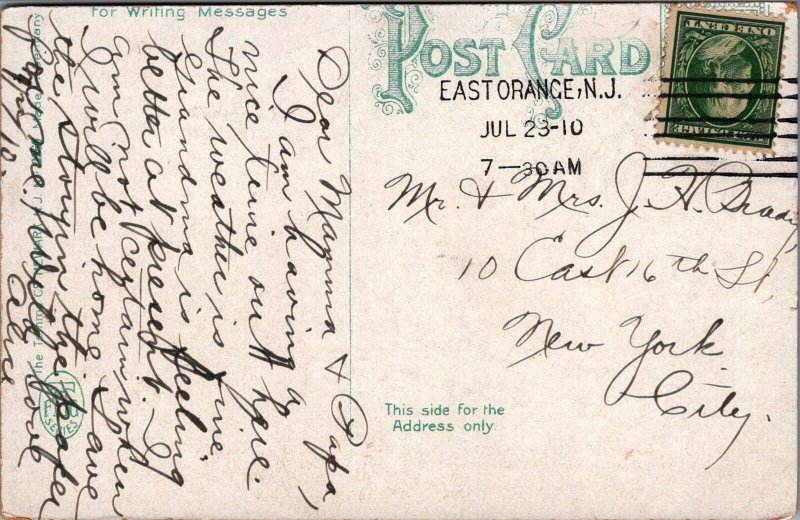 For Writing Messages
Dear Mamma & Papa,
I am having a
nice time out here.
The weather is fine
Grandma is feeling
better at present. I
am not certain when
I will be home. I
the storm in the paper
love
Alice
POST CARD
EAST ORANGE, N.J.
JUL 23-10
7-30AM
ONE CENT
Mr. & Mrs. J. H. Brady
10 East 16th St,
New York
City.
This side for the
Address only.
SERIES